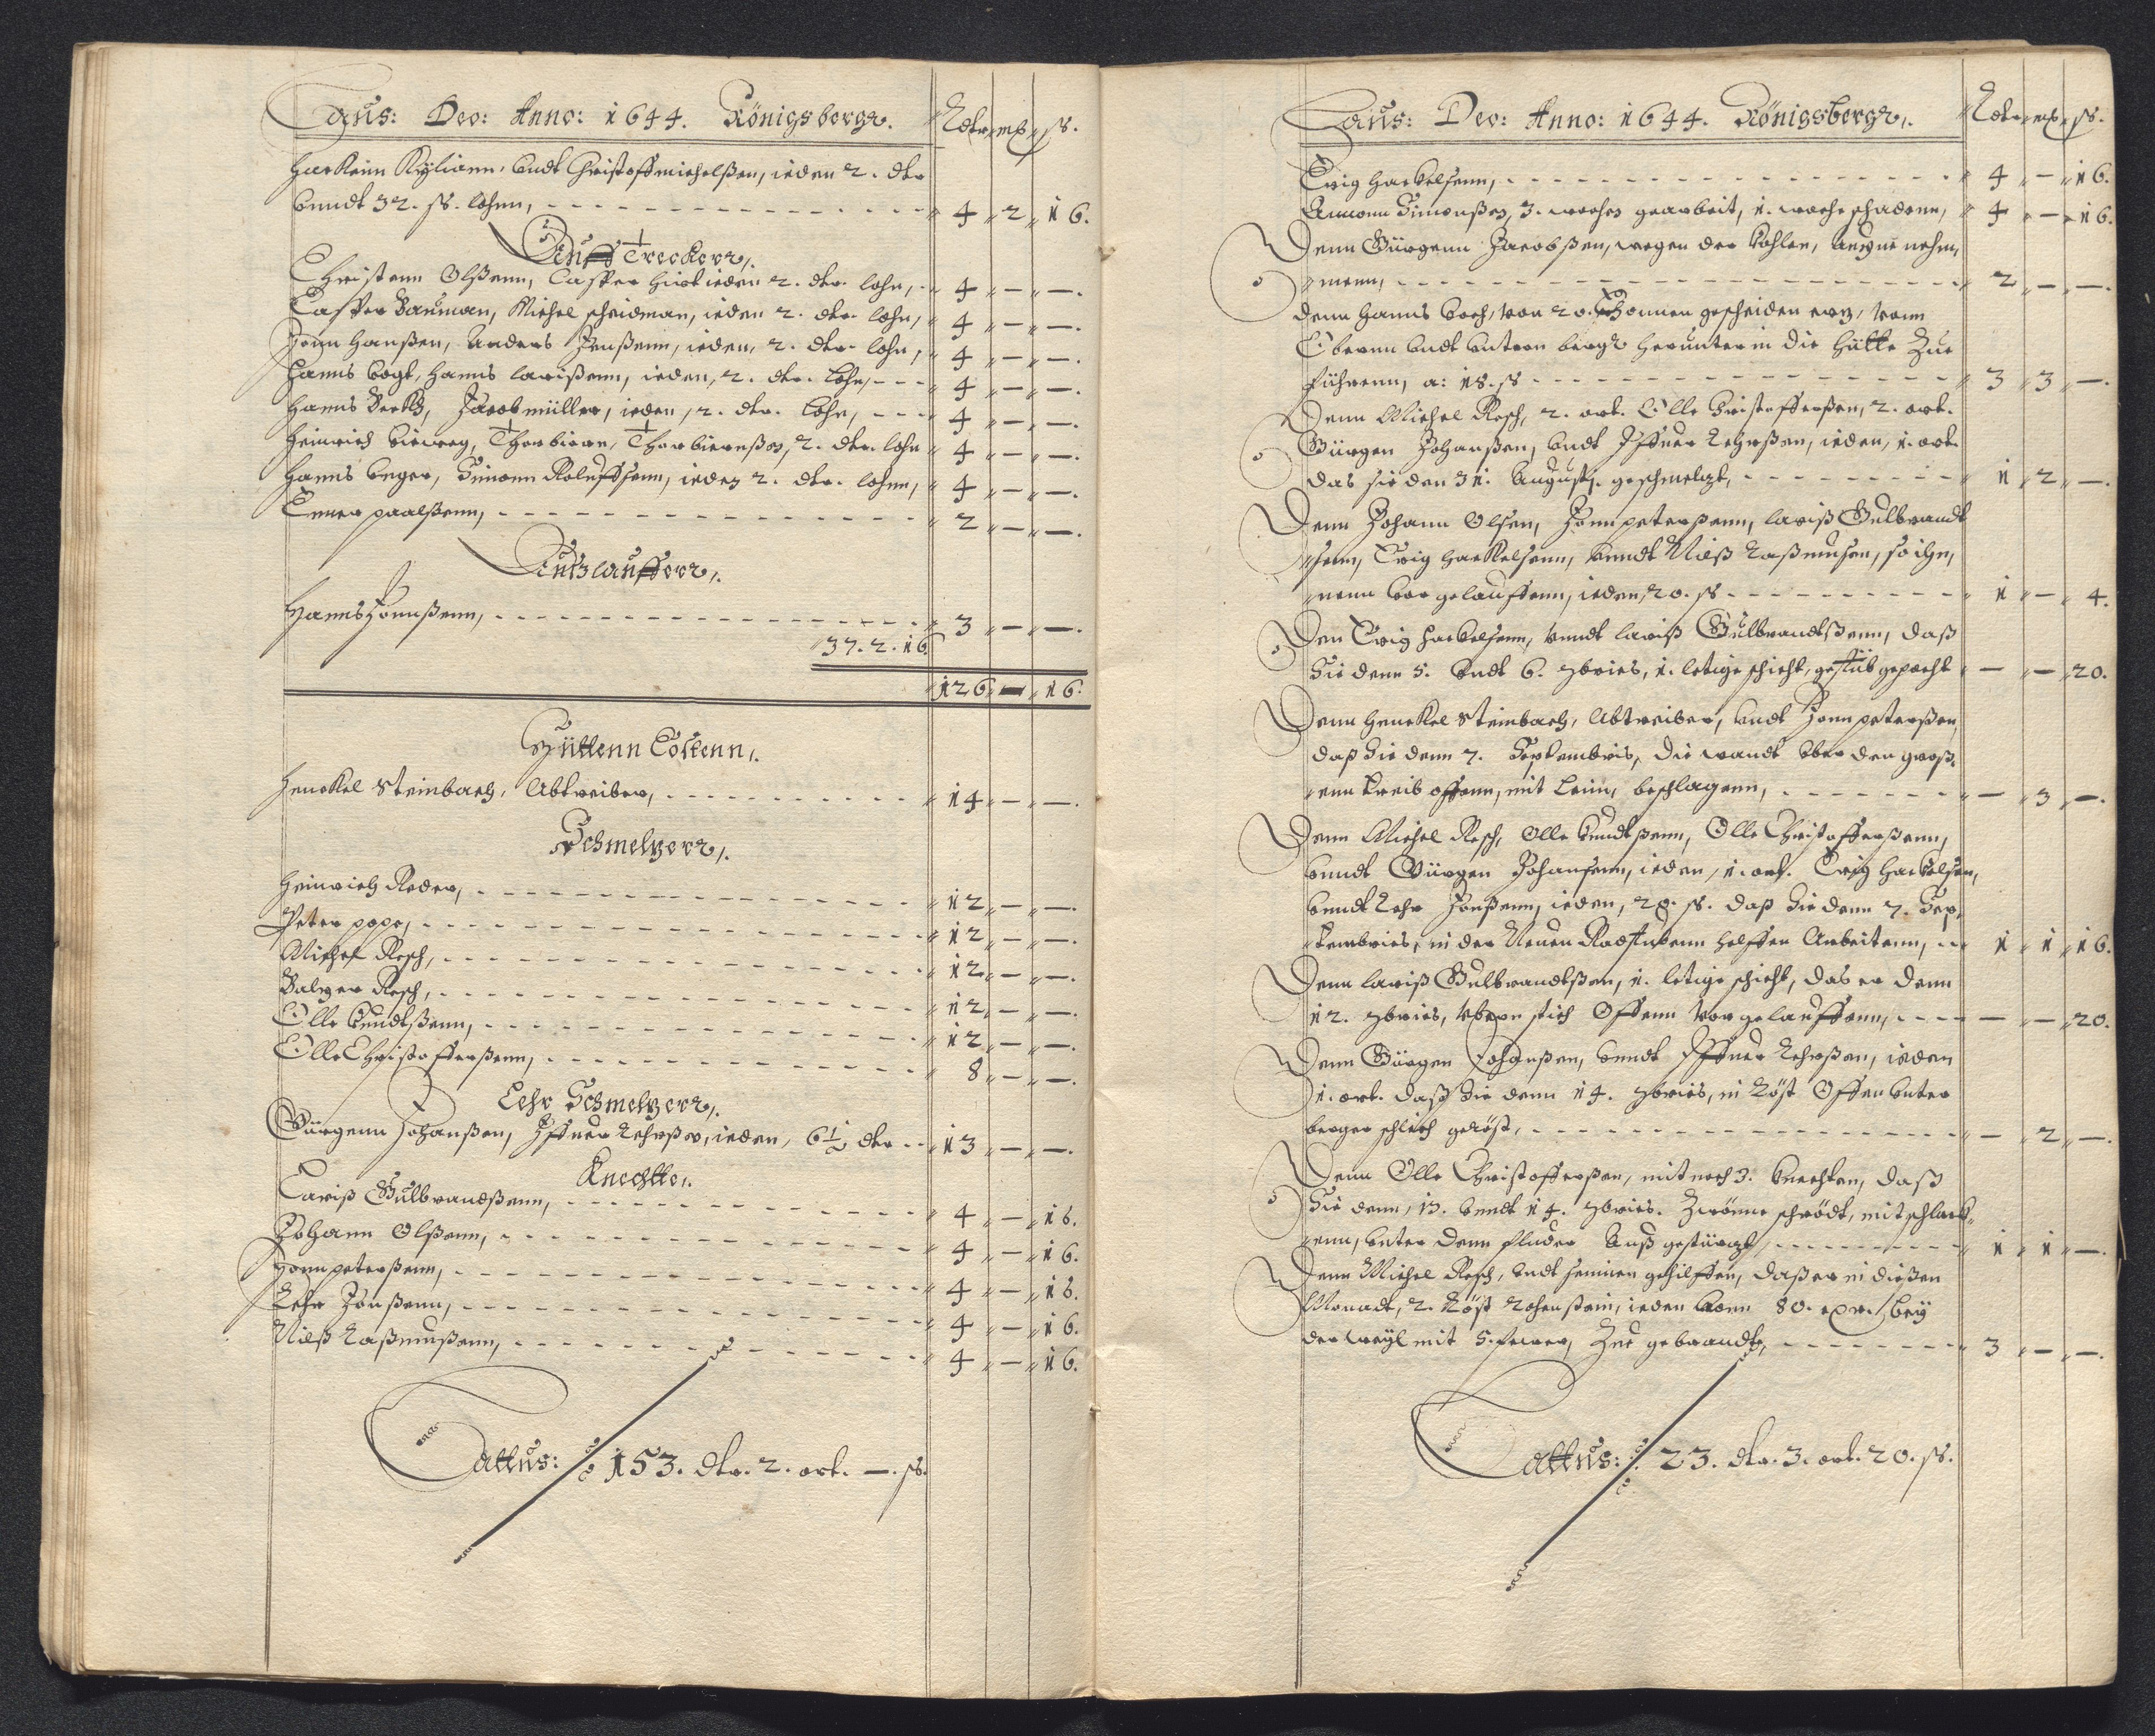 Laus: Deo: Anno: 1644. Königsbergk. Rdtr mß ß.
Harkein Kyliann, undt Christoff Michelßen, ieden 2. dtr
unndt 32. ß. lohnn, 4 2 16.
Auff Trecker,.
Christenn Olßenn, Casper Hirt ieden 2. dtr. lohn, 4 — —.
Casper Bauman, Michel Scheidman, ieden 2. dtr. lohn, 4 — —.
Jonn Hanßen, Anders Jenßenn, ieden, 2. dtr. lohn, 4 — —.
Hanns Vogt, Hanns Larißenn, ieden, 2. dtr. lohn, 4 — —.
Hanns Jacob Müller, ieden, 2. dtr. lohn, 4 — —.
Heinrich Thorbiörn, Thorbiörnßen, 2. dtr. lohn 4 — —.
Hanns Unger, Simonn Roluffsenn, ieden 2. dtr. lohnn, 4 — —.
Enner Paalßenn, 2 — —.
Hanns Jonnßenn, 3 — —.
37. 2. 16
126 — 16.
Hüttenn Costenn,.
Henckel Steinbach, Abtreiber, 14 — —.
Schmeltzer,.
Heinrich Reder, 12 — —.
Peter Pope, 12 — —.
Michel Resch, 12 — —.
Baltzer Resch, 12 — —.
Olle Knudtßenn, 12 — —.
Olle Christofferßenn, 8 — —.
Lehr Schmeltzer,.
Gürgenn Johanßen, Iffuer Lehrßen, ieden, 6½ dtr 13 — —.
Knechtte,.
Lariß Gulbrandßenn, 4 — 16.
Johann Olßenn, 4 — 16.
Jonn Peterßenn, 4 — 16.
Lehr Jonßenn, 4 — 16.
Nielß Raßmußenn, 4 — 16.
Lattus: 153. dtr. 2. ort. —. ß.
Laus: Deo: Anno: 1644. Königsbergk,. Rdtr mß ß.
Erig Harkelsenn, 4 — 16.
Simonßen, 3. wochen gearbeit, 1. woche schadenn, 4 — 16.
Denn Gürgenn Jacobßen, wegen der Kohlen, nehm,
menn, 2 — —.
Denn Hanns Koch, von 20. Thonnen gescheiden ertz, vonn
Obernn undt Untern bergk herunter in die Hütte Zue
führenn, a: 18. ß 3 3 —.
Denn Michel Resch, 2. ort. Olle Christofferßen, 2. ort.
Gürgen Johanßen, undt Iffuer Lehrßen, ieden, 1. ort.
das sie den 31. Augusti. geschmeltzt, 1 2 —.
Denn Johann Olsen, Jonn Peterßenn, Lariß Gulbrandt
senn, Erig Harkelsenn, unndt Nielß Raßmusen, so ihn,
nenn vor gelauffenn, ieden, 20. ß 1 — 4.
Den Erig Harkelsenn, unndt Lariß Gulbrandtßenn, daß
Sie denn 5. undt 6. 7bries, 1. letige schicht, gestüb gepocht — — 20.
Denn Henckel Steinbach, Abtreiber, undt Jonn Peterßen,
daß Sie denn 7. Septembris, die wandt über den groß,
enn treib offenn, mit Leim, beschlagenn, — 3 —.
Denn Michel Resch, Olle Knudtßenn, Olle Christofferßenn,
unndt Gürgen Johansenn, ieden, 1. ort. Erig Harkelsen,
unndt Lehr Jonßenn, ieden, 20. ß. daß Sie denn 7. Sep,
tembries, in der Neuen Radstubenn helffen Arbeitenn, 1 1 16.
Denn Lariß Gulbrandtßen, 1. letige schicht, das er denn
12. 7bries, übern stich Offenn vor gelauffenn, — — 20.
Denn Gürgen Johanßen, unndt Iffuer Lehrßen, ieden
1. ort. daß Sie denn 14. 7bries, in Röst Offen unter
berger schlich geröst, — 2 —.
Denn Olle Christofferßen, mit noch 3. knechten, daß
Sie denn, 13. unndt 14. 7bries. Zwönne schrödt, mit schlack,
enn, unter denn fluder Auß gestürtzt 1 1 —.
Denn Michel Resch, undt seinen gehilffen, daß er in dießen
Monadt, 2. Röst Rohenstein, ieden vonn 80. bey
der weyl mit 5. feuer, Zue gebrandt, 3 — —.
Lattus: 23. dtr. 3. ort. 20. ß.